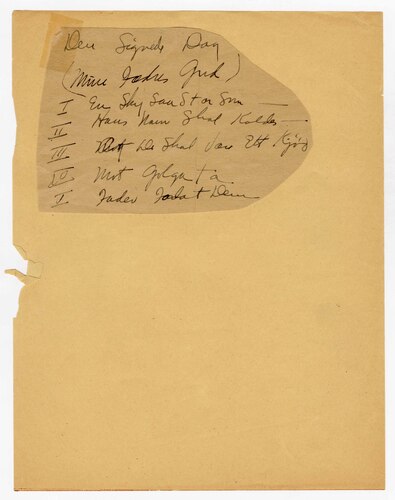 Den Signede Dag
(Mine Fadres Gud)
I En Sky Saa Stor Som —
II Hans Navn Skal Kaldes —
III De Skal Vare Ett Kjöd
IV Mot Golgata
V Fader Forlat Dem